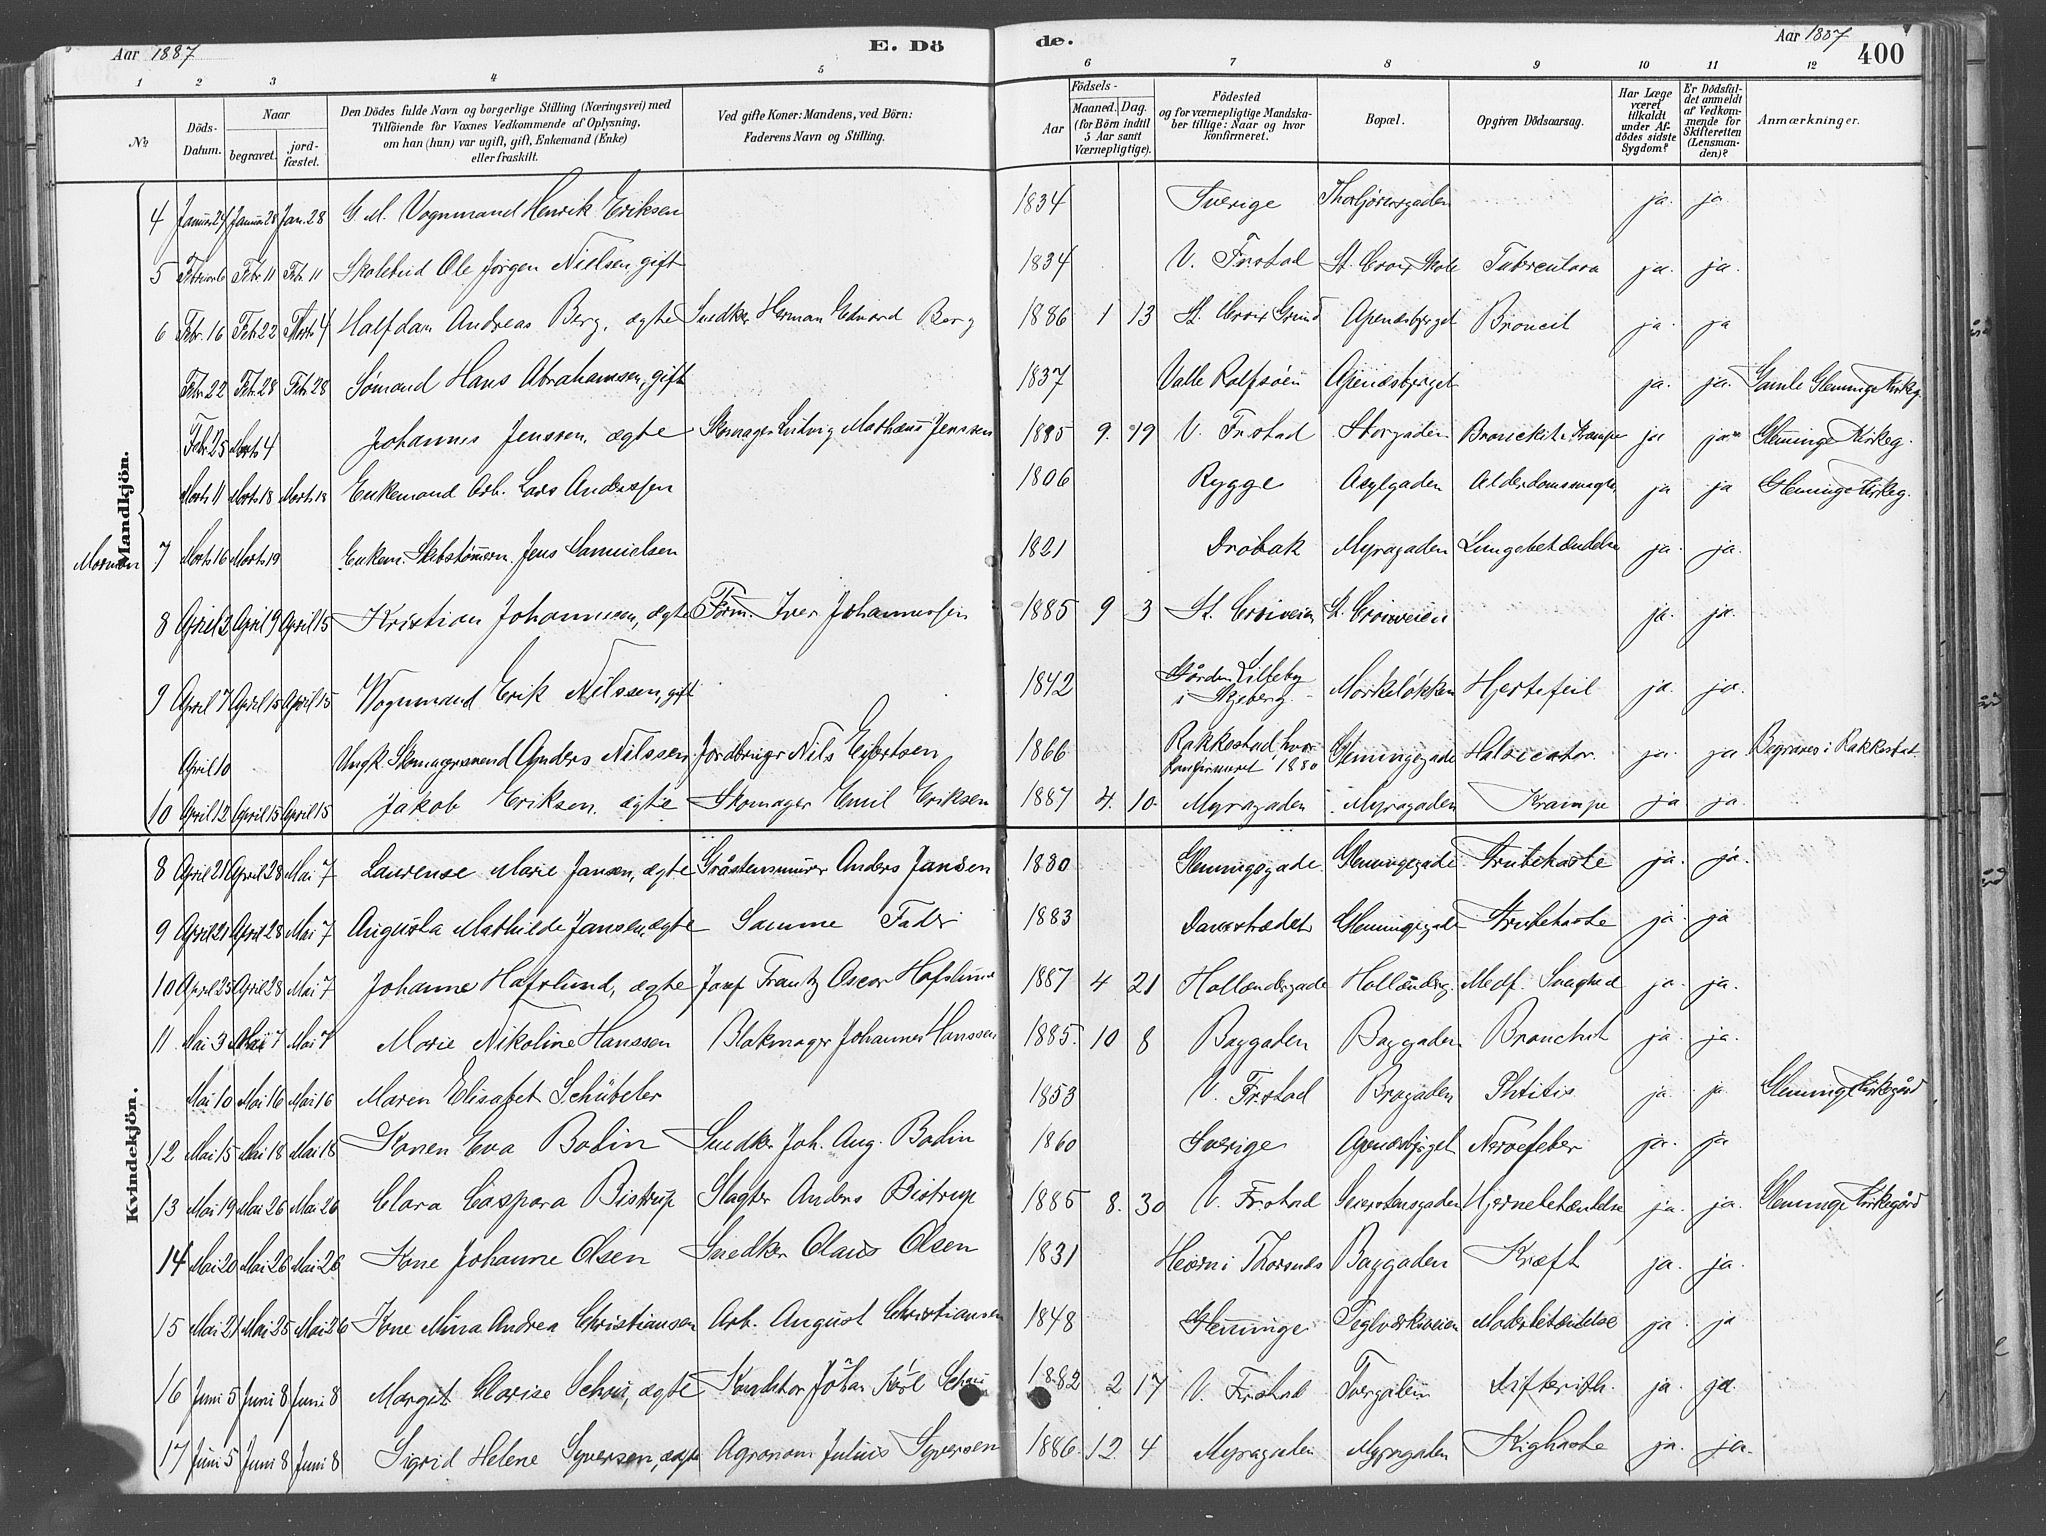 Aar 1887 E. Dö de. Aar 1887 400
1 2 3 4 5 6 7 8 9 10 11 12
№ Döds-Datum. Naar begravet. jord-fæstet. Den Dödes fulde Navn og borgerlige Stilling (Næringsvei) med Tilföiende for Voxnes Vedkommende af Oplysning, om han (hun) var ugift, gift, Enkemand (Enke) eller fraskilt. Ved gifte Koner: Mandens, ved Börn: Faderens Navn og Stilling. Födsels- Aar Maaned. Dag. (for Börn indtil 5 Aar samt Værnepligtige). Födested og for værnepligtige Mandskaber tillige: Naar og hvor konfirmeret. Bopæl. Opgiven Dödsaarsag. Har Læge været tilkaldt under Afdödes sidste Sygdom? Er Dödsfaldet anmeldt af Vedkommende for Skifteretten (Lensmanden)? Anmærkninger.
Mandkjön.
4 Januar 24 Januar 28 Jan. 28 G. M. Vognmand Henrik Eriksen 1834 Sverige Thorbjörnsgaden ja. ja
5 Februar 6 Febr. 11 Febr. 11 Skolebud Ole Jörgen Nielsen, gift 1834 V. Frstad St. Croix Skole ja. ja.
6 Febr. 16 Febr. 22 Marts 4 Halfdan Andreas Berg, ægte Snedker Herman Edvard Berg 1886 1 13 St. Croix Grund Apenæsbjerget ja. ja
Febr. 22 Febr. 28 Febr. 28 Sömand Hans Abrahamsen, gift 1837 Valle Rolfsöen Apenæsbjerget ja. ja. Gamle Glemminge Kirkeg.
Febr. 25 Marts 4 Johannes Jenssen, ægte Skomager Ludvig Mathæus Jenssen 1885 9. 19 V. Frstad Storgaden Bronchit. Krampe ja ja Glemminge Kirkeg.
Marts 11 Marts 18 Marts 18 Enkemand Arb. Lars Anderssen 1806 Rygge Asylgaden ja ja Glemminge Kirkeg.
Morman 7 Marts 16 Marts 19 Enkem. Skibstömrm. Jens Samuelsen 1821 Dröbak Myragaden Lungebetændelse ja. ja.
8 April 2 April 9 April 15 Kristian Johannessen, ægte Form. Iver Johannessen 1885 9 3 St. Croixveien St. Croixveien ja. ja.
9 April 7 April 15 April 15 Vognmand Erik Nilssen, gift 1842 Gården Lilleby i Skjeberg Hjertefeil ja. ja.
April 10 Ungk. Skomagersvend Anders Nilssen Jordbruger Nils Eilertsen 1866 Rakkestad, hvor Konfirmeret 1880 Glemmingegade ja. ja Begraves i Rakkestad
10 April 12 April 15 April 15 Jakob Eriksen. ægte Skomager Emil Eriksen 1887 4. 10. Myragaden Myragaden Krampe ja ja.
Kvindekjön.
8 April 21 April 28 Mai 7 Laurense Marie Jansen, ægte Gråstensmurer Anders Jansen 1880 Glemmingegade Glemmingegade Strubehoste ja. ja.
9 April 21 April 28 Mai 7 Augusta Mathilde Jansen, ægte Samme Fader 1883 Damstrædet Glemmingegade Strubehoste ja. ja
10 April 25 April 28 Mai 7 Johanne Hafslund, ægte Josef Frantz Oscar Hafslund 1887 4 21 Hollændergade Hollænderg. Medf. Svaghed ja. ja.
11 Mai 3 Mai 7 Mai 7 Marie Nikoline Hanssen Blokmager Johannes Hanssen 1885. 10 8 Baggaden Baggaden Bronchit ja. ja.
Mai 10 Mai 16 Mai 16 Maren Elisabet Schübeler 1853 V. Frstad Brogaden Phtitis ja. ja Glemminge Kirkegård
12 Mai 15 Mai 18 Mai 18 Konen Eva Bodin Snedker Joh. Aug. Bodin 1860 Sverige Apenæsbjerget Nervefeber ja. ja
13 Mai 19 Mai 26 Mai 26 Clara Caspara Bistrup Slagter Anders Bistrup 1885 8. 30 V. Frstad Hjernebetændelse ja. ja. Glemminge Kirkegård
14 Mai 20 Mai 26 Mai 26 Kone Johanne Olsen Snedker Olaus Olsen 1831 Heiern i Thorsnæs Baggaden Kræft ja. ja.
15 Mai 21 Mai 25 Mai 26 Kone Mina Andrea Christiansen Arb. August Christiansen 1848 Glemminge Teglværksveien Moderbetændelse ja. ja
16 Juni 5 Juni 8 Juni 8 Margit Clarise Schou, ægte Konditor Johan Karl Schou 1882 2 17 V. Frstad Difterith. ja. ja.
17 Juni 5 Juni 8 Juni 8 Sigrid Helene Syversen, ægte Agronom Julius Syversen 1886. 12. 4 Myragaden Myragaden Kighoste ja. ja.